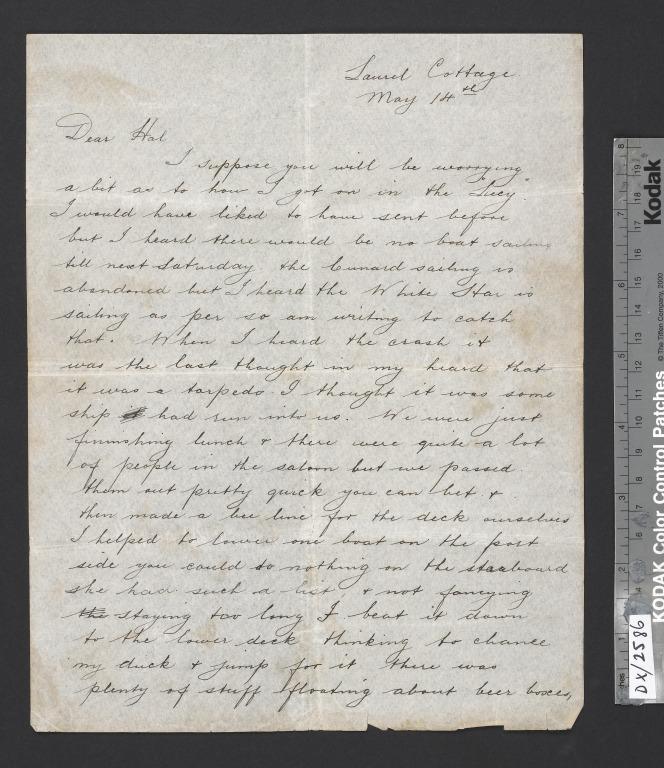 Laurel Cottage
May 14th
Dear Hal
I suppose you will be worrying
a bit as to how I got on in the "Lucy".
I would have liked to have sent before
but I heard there would be no boat sailing
till next Saturday the Cunard sailing is
abandoned but I heard the White Star is
sailing as per so am writing to catch
that. When I heard the crash it
was the last thought in my heard that
it was a torpedo I thought it was some
ship had run into us. We were just
finnishing lunch & there were quite a lot
of people in the saloon but we passed
them out pretty quick you can bet &
then made a bee line for the deck ourselves
I helped to lower one boat on the port
side you could do nothing on the staaboard
she had such a list, & not fancying
the staying too long I beat it down
to the lower deck thinking to chance
my duck & jump for it there was
plenty of stuff floating about beer boxes,
Kodak
© The Tiffen Company, 2000
KODAK Color Control Patches
8
7
6
5
4
3
2
19
18
17
16
15
14
13
12
11
10
9
8
7
6
DX/2586